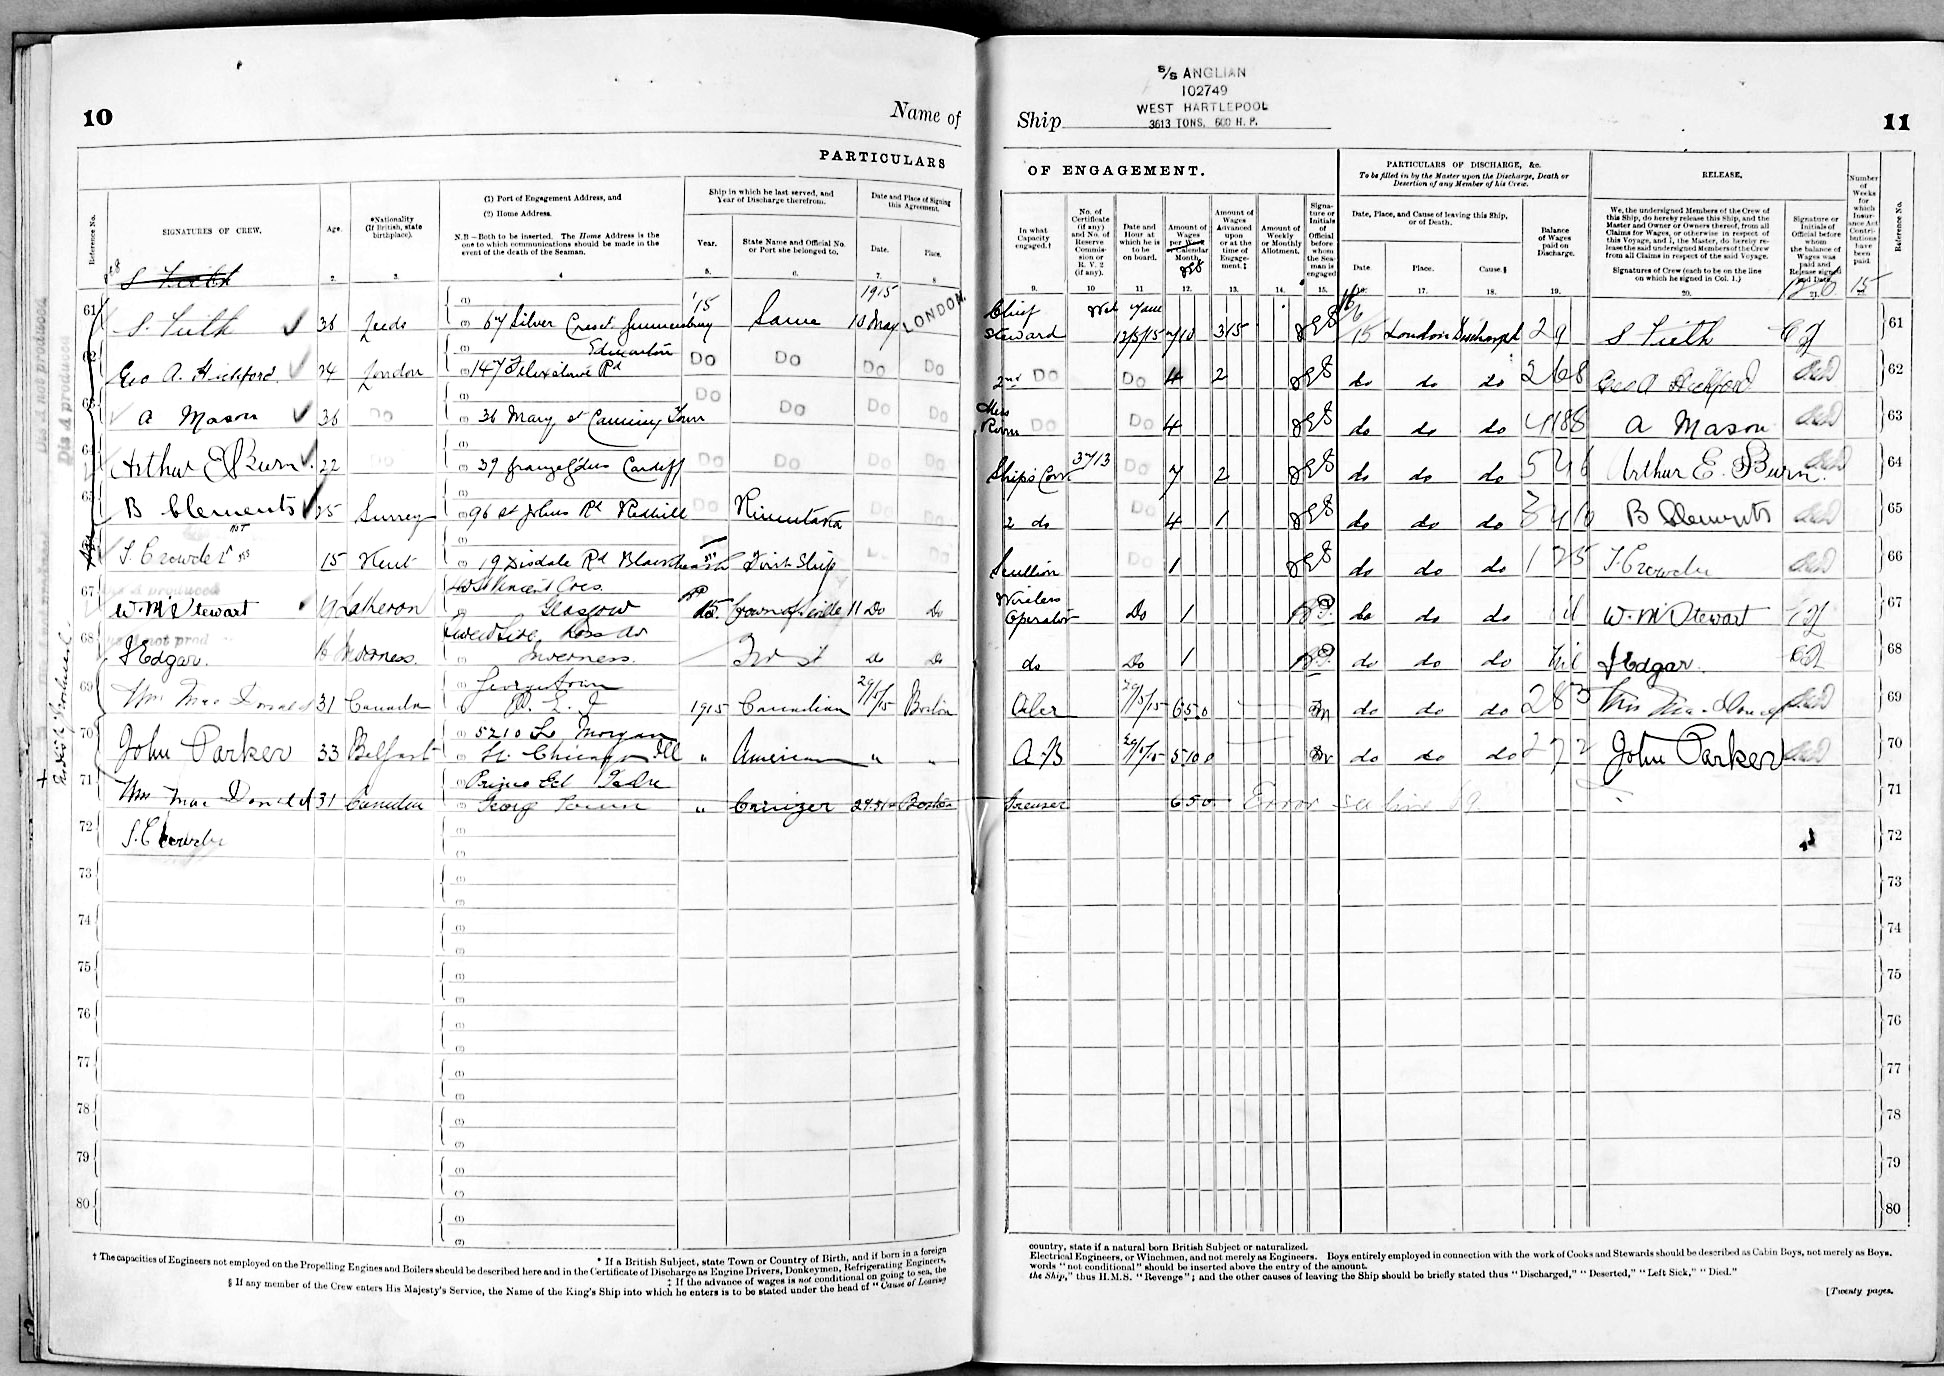 10
Name of
PARTICULARS
Reference No.
SIGNATURES OF CREW.
Age.
*Nationality
(If British, state
birthplace).
(1) Port of Engagement Address, and
(2) Home Address.
N.B—Both to be inserted. The Home Address is the
one to which communications should be made in the
event of the death of the Seaman.
Ship in which he last served, and
Year of Discharge therefrom.
Year.
State Name and Official No.
or Port she belonged to.
Date and Place of Signing
this Agreement.
Date.
Place.
2. 3. 4 5. 6. 7. 8
Dis A not produced
Dis A produced
61 36 Leeds 67 Silver '15 Same 1915 10 May LONDON.
62 Geo A. Hickford 24 London 147 Felixstowe Rd Edmonton Do Do Do Do
63 A Mason 36 Do 36 Mary St Canning Town Do Do Do Do
64 Arthur E Burn 22 39 Cardiff Do Do Do Do
65 B Clements 25 Surrey 96 St Johns Rd Redhill Do Do Do
15 Kent 19 Rd First Ship Do Do
67 W. M Stewart 19 Latheron Glasgow 15. 11 Do Do
68 J Edgar. 16 Inverness. Inverness. First Do Do
69 Wm Mac Donald 31 Canada Georgetown P. E. I 1915 Canadian 29/5/15 Boston
70 John Parker 33 Belfast 5210 Morgan St. Chicago Ill " American " "
71 Wm Mac Donald 31 Canada George Town " Boston
72
73
74
75
76
77
78
79
80
† The capacities of Engineers not employed on the Propelling Engines and Boilers should be described here and in the Certificate of Discharge as Engine Drivers, Donkeymen, Refrigerating Engineers,
* If a British Subject, state Town or Country of Birth, and if born in a foreign
‡ If the advance of wages is not conditional on going to sea, the
§ If any member of the Crew enters His Majesty's Service, the Name of the King's Ship into which he enters is to be stated under the head of "Cause of Leaving
Ship
S/S ANGLIAN
102749
WEST HARTLEPOOL
3613 TONS, 600 H. P.
11
OF ENGAGEMENT.
PARTICULARS OF DISCHARGE, &c.
To be filled in by the Master upon the Discharge, Death or
Desertion of any Member of his Crew.
RELEASE.
Number
of
Weeks
for
which
Insur-
ance Act
Contri-
butions
have
been
paid
Reference No.
In what
Capacity
engaged.†
No. of
Certificate
(if any)
and No. of
Reserve
Commis-
sion or
R. V. 2
(if any).
Date and
Hour at
which he is
to be
on board.
Amount of
Wages
per Week
or Calendar
Month.
Amount of
Wages
Advanced
upon
or at the
time of
Engage-
ment.‡
Amount of
Weekly
or Monthly
Allotment.
Signa-
ture or
Initials
of
Official
before
whom
the Sea-
man is
engaged
Date, Place, and Cause of leaving this Ship,
or of Death.
Date. Place. Cause.§
Balance
of Wages
paid on
Discharge.
We, the undersigned Members of the Crew of
this Ship, do hereby release this Ship, and the
Master and Owner or Owners thereof, from all
Claims for Wages, or otherwise in respect of
this Voyage, and I, the Master, do hereby re-
lease the said undersigned Members of the Crew
from all Claims in respect of the said Voyage.
Signatures of Crew (each to be on the line
on which he signed in Col. 1.)
Signature or
Initials of
Official before
whom
the balance of
Wages was
paid and
Release signed
and Date.
9. 10 11 12. 13. 14. 15. 17. 18. 19. 20. 21.
Chief Steward Wed 7 am 12/5/15 London 61
2nd Do Do 4 2 do do do Geo A Hickford 62
Mess Room Do Do 4 do do do A Mason 63
Ship's Cook Do 7 2 do do do Arthur E. Burn. 64
2 do Do 4 1 do do do B Clements 65
Scullion Do 1 do do do 66
Wireless Operator Do 1 do do do W. M Stewart 67
do Do 1 do do do Nil J Edgar. 68
Oiler do do do 69
A B do do do John Parker 70
Error see line 69 71
72
73
74
75
76
77
78
79
80
country, state if a natural born British Subject or naturalized.
Electrical Engineers, or Winchmen, and not merely as Engineers. Boys entirely employed in connection with the work of Cooks and Stewards should be described as Cabin Boys, not merely as Boys.
words "not conditional" should be inserted above the entry of the amount.
the Ship," thus H.M.S. "Revenge"; and the other causes of leaving the Ship should be briefly stated thus "Discharged," "Deserted," "Left Sick," "Died."
[Twenty pages.